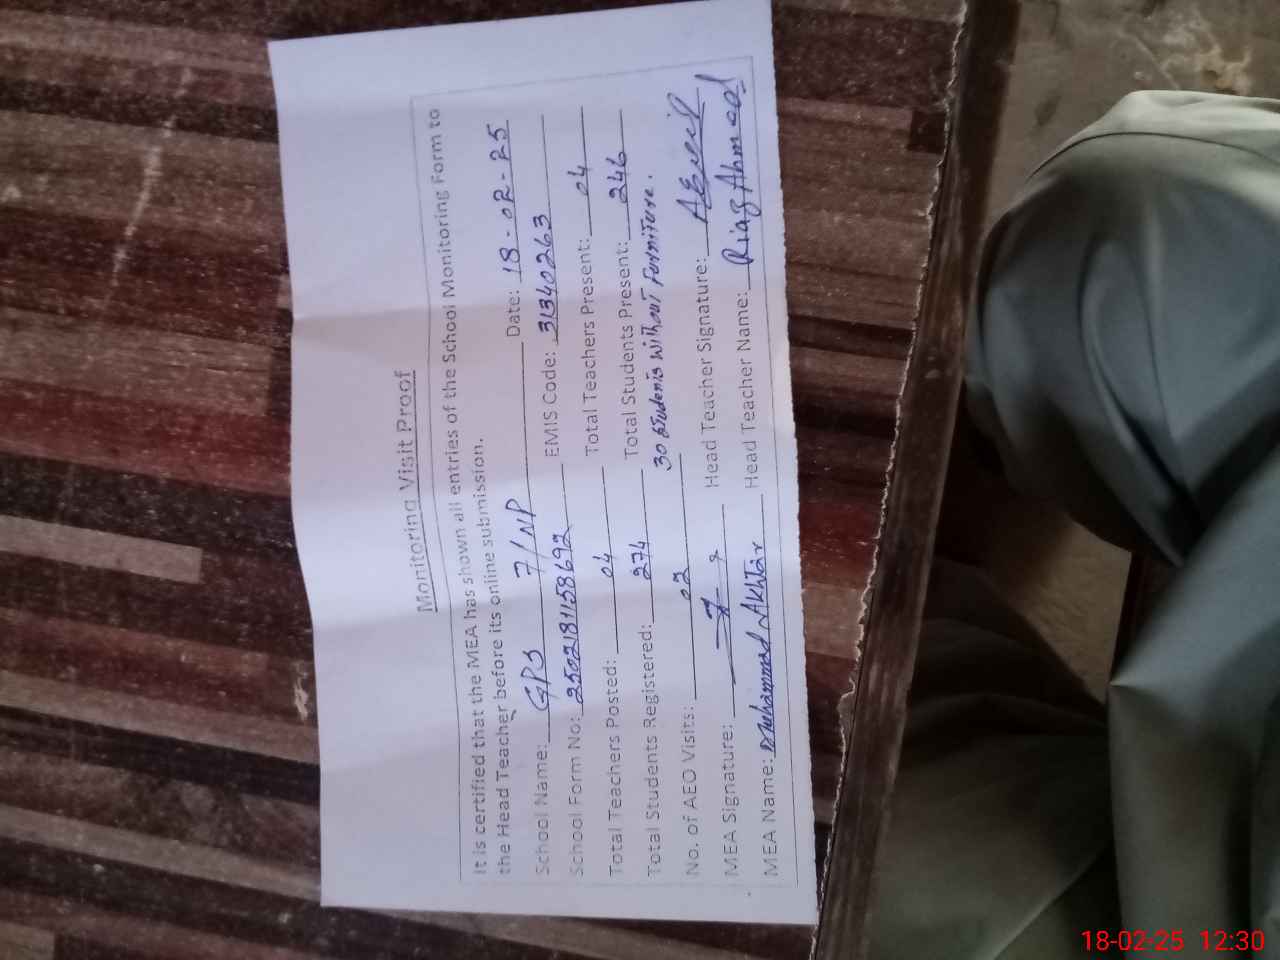 Monitoring Visit Proof
It is certified that the MEA has shown all entries of the School Monitoring Form to
the Head Teacher before its online submission.
School Name: GPS 7/NP Date: 18-02-25
School Form No: 2502181158692 EMIS Code: 31340263
Total Teachers Posted: 04 Total Teachers Present: 04
Total Students Registered: 274 Total Students Present: 246
No. of AEO Visits: 02 30 Students without Furniture.
MEA Signature: Head Teacher Signature:
MEA Name: Muhammad Akhtar Head Teacher Name: Riaz Ahmad
18-02-25 12:30